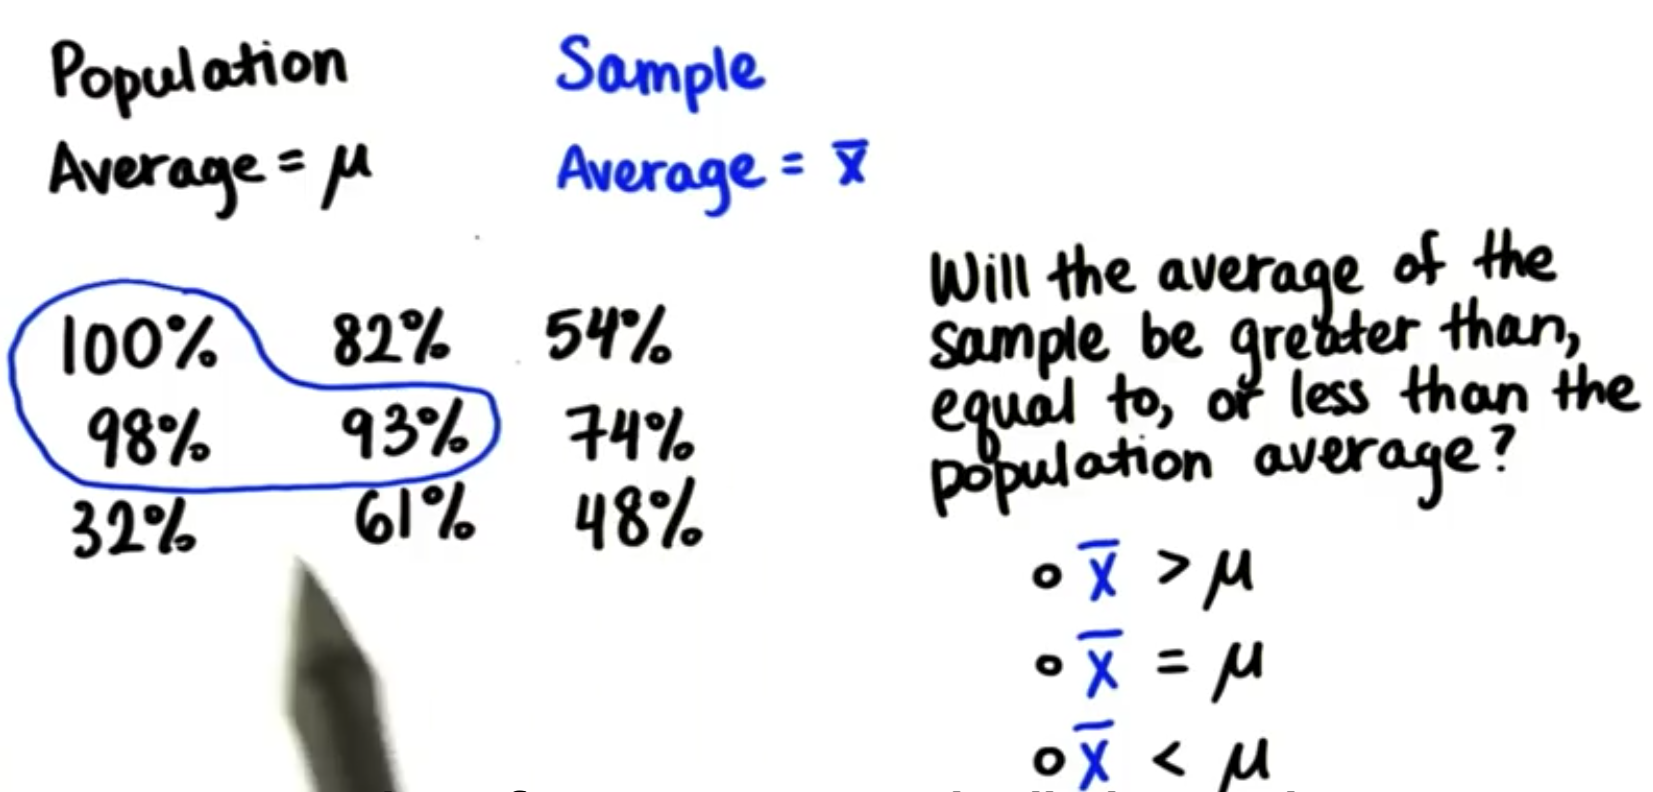 Population Sample
Average = μ Average = x̄
100% 82% 54%
98% 93% 74%
32% 61% 48%
Will the average of the
sample be greater than,
equal to, or less than the
population average?
o x̄ > μ
o x̄ = μ
o x̄ < μ